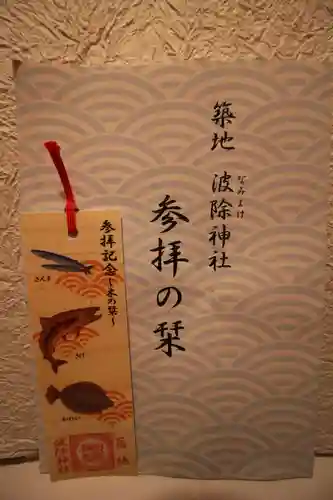 築地 波除神社
なみよけ
参拝の栞
参拝記念~木の栞~
さんま
さけ